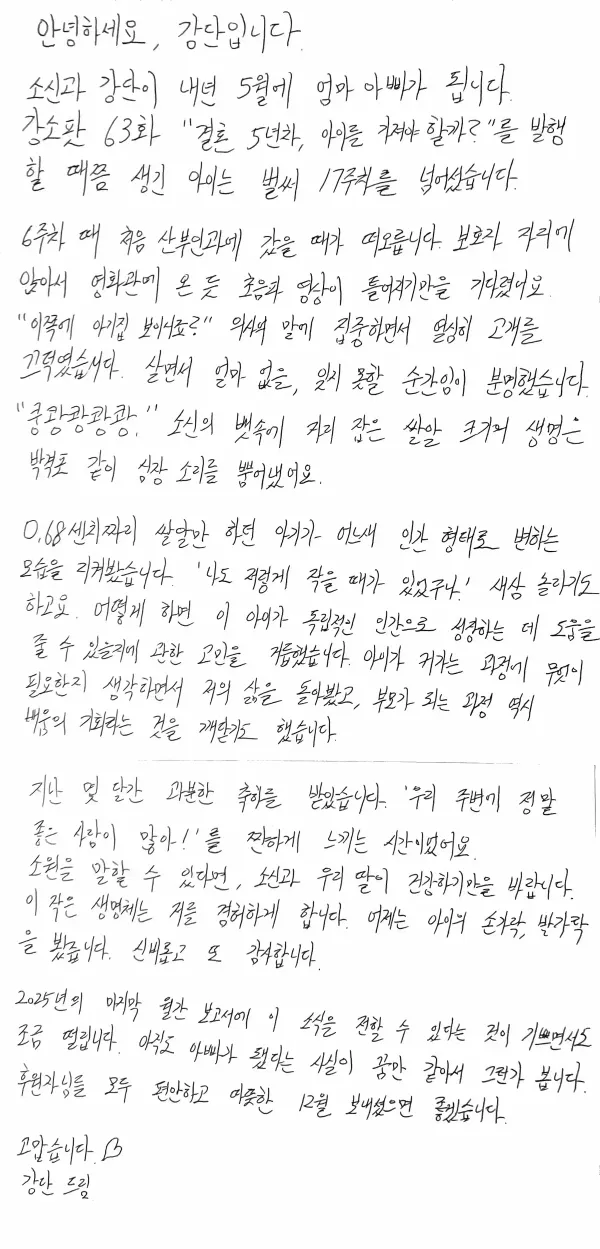 안녕하세요, 강단입니다.
소신과 강단이 내년 5월에 엄마 아빠가 됩니다.
강소팟 63화 "결혼 5년차, 아이를 가져야 할까?"를 발행
할 때쯤 생긴 아이는 벌써 17주차를 넘어섰습니다.
6주차 때 처음 산부인과에 갔을 때가 떠오릅니다. 보호자 자리에
앉아서 영화관에 온 듯 초음파 영상이 틀어지기만을 기다렸어요.
"이쪽에 아기집 보이시죠?" 의사의 말에 집중하면서 열심히 고개를
끄덕였습니다. 살면서 얼마 없을, 잊지 못할 순간임이 분명했습니다.
"쿵쾅쾅쾅쾅." 소신의 뱃속에 자리 잡은 쌀알 크기의 생명은
박격포 같이 심장 소리를 뿜어냈어요.
0.68센치짜리 쌀알만 하던 아기가 어느새 인간 형태로 변하는
모습을 지켜봤습니다. '나도 저렇게 작을 때가 있었구나.' 새삼 놀라기도
하고요. 어떻게 하면 이 아이가 독립적인 인간으로 성장하는 데 도움을
줄 수 있을지에 관한 고민을 거듭했습니다. 아이가 커가는 과정에 무엇이
필요한지 생각하면서 저의 삶을 돌아봤고, 부모가 되는 과정 역시
배움의 기회라는 것을 깨닫기도 했습니다.
지난 몇 달간 과분한 축하를 받았습니다. '우리 주변에 정말
좋은 사람이 많아!'를 찐하게 느끼는 시간이었어요.
소원을 말할 수 있다면, 소신과 우리 딸이 건강하기만을 바랍니다.
이 작은 생명체는 저를 겸허하게 합니다. 어제는 아이의 손가락, 발가락
을 봤습니다. 신비롭고 또 감사합니다.
2025년의 마지막 월간 보고서에 이 소식을 전할 수 있다는 것이 기쁘면서도
조금 떨립니다. 아직도 아빠가 됐다는 사실이 꿈만 같아서 그런가 봅니다.
후원자님들 모두 편안하고 따뜻한 12월 보내셨으면 좋겠습니다.
고맙습니다. ♡
강단 드림